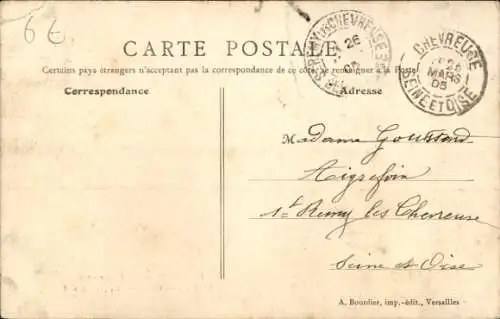 6€
CARTE POSTALE
Certains pays étrangers n'acceptant pas la correspondance de ce côté, se renseigner à la Poste
Correspondance
Adresse
CHEVREUSE
26
05
CHEVREUSE
MARS
05
SEINE ET OISE
Madame Goussard
Aigrefoin
St Remy les Chevreuse
Seine et Oise
A. Bourdier, imp.-édit., Versailles